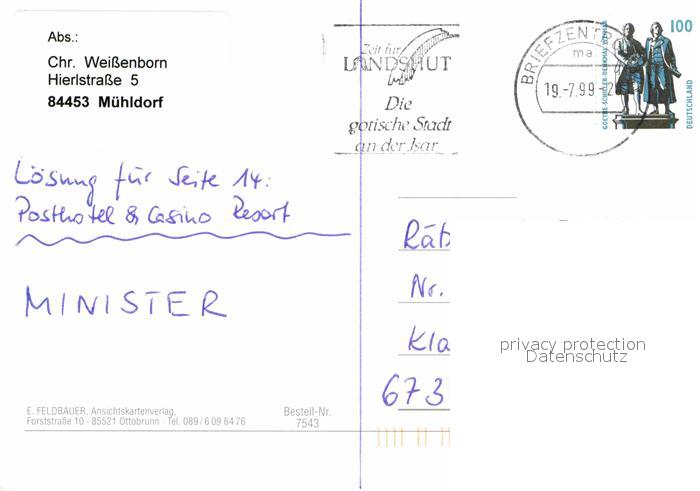 Abs.:
Chr. Weißenborn
Hierlstraße 5
84453 Mühldorf
Zeit für
LANDSHUT
Die
gotische Stadt
an der Isar
BRIEFZENT
ma
19.-7.99-2
100
GOETHE-SCHILLER-DENKMAL
DEUTSCHLAND
Lösung für Seite 14:
Posthotel & Casino Resort
MINISTER
Rät
Nr.
Kla
673
privacy protection
Datenschutz
E. FELDBAUER, Ansichtskartenverlag,
Forststraße 10 · 85521 Ottobrunn · Tel. 089/6 09 64 76
Bestell-Nr.
7543